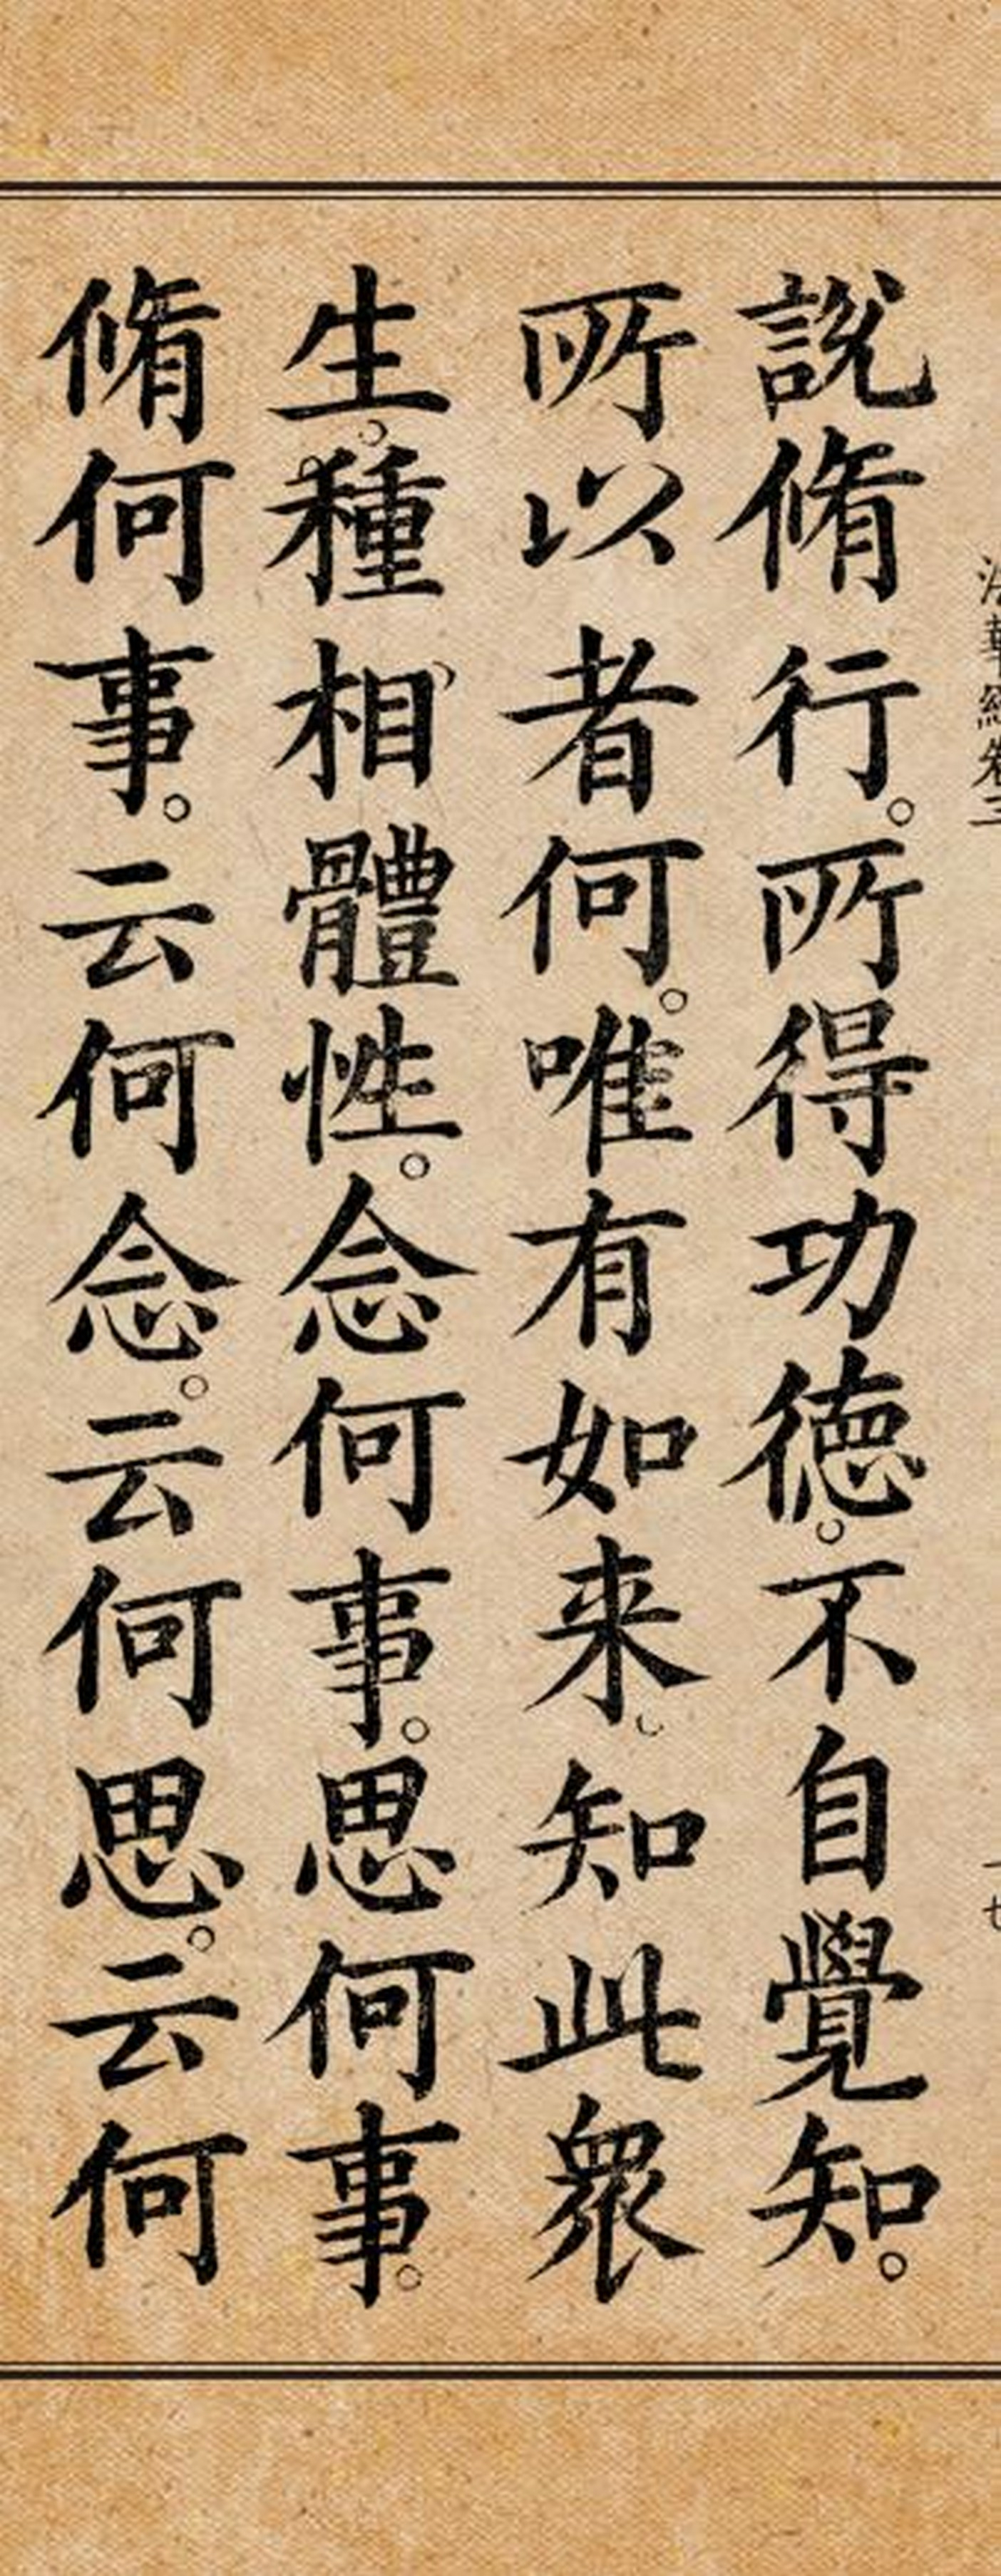 法華經卷三 十七
說脩行。所得功德。不自覺知。
所以者何。唯有如来。知此眾
生。種相體性。念何事。思何事。
脩何事。云何念。云何思。云何